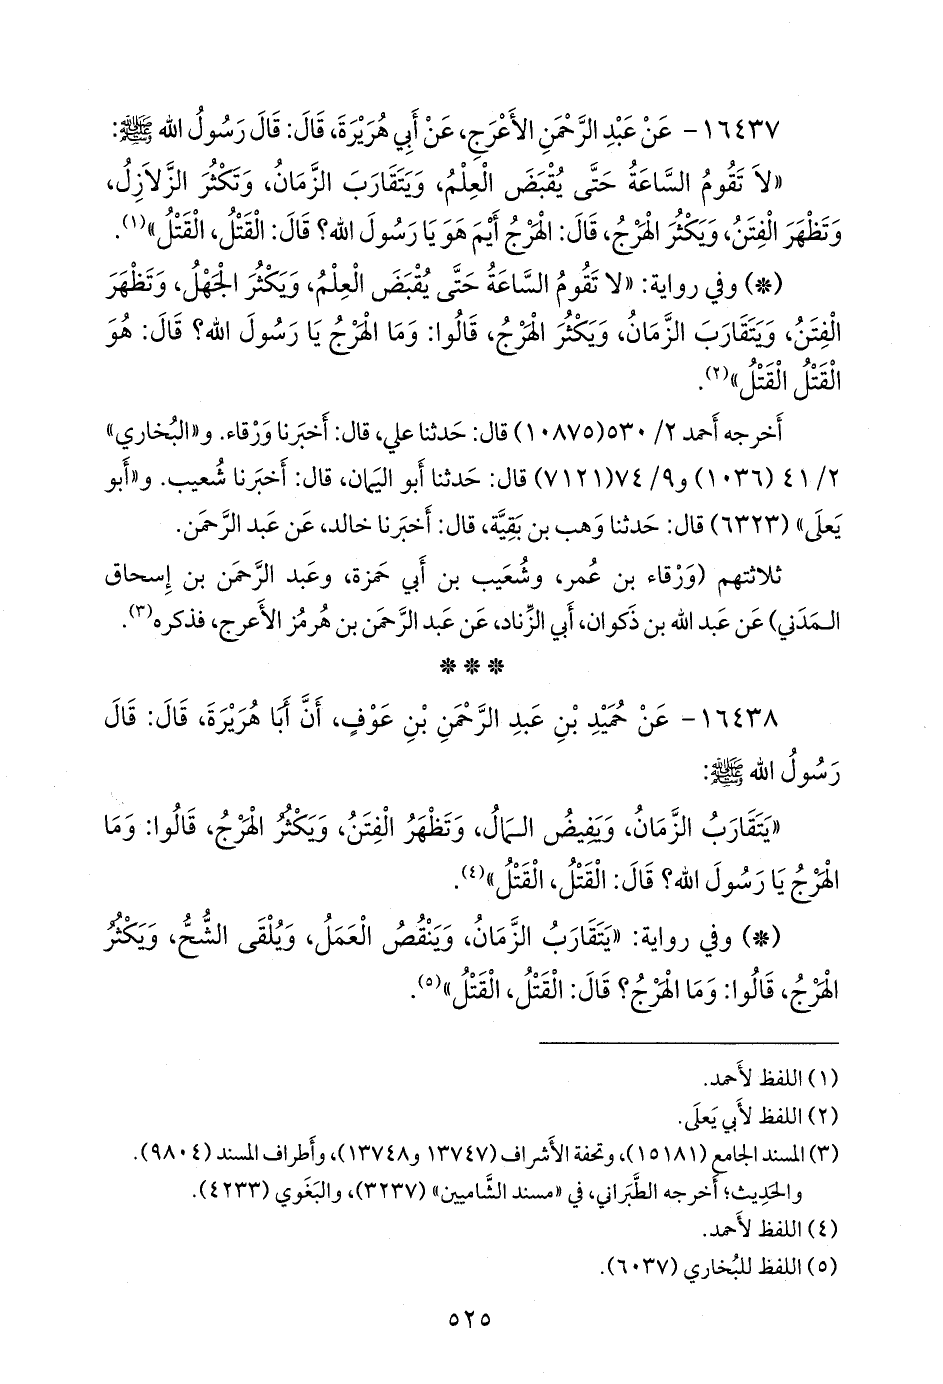 ١٦٤٣٧- عَنْ عَبْدِ الرَّحْمَنِ الأَعْرَجِ، عَنْ أَبِي هُرَيْرَةَ، قَالَ: قَالَ رَسُولُ الله ﷺ:
«لاَ تَقُومُ السَّاعَةُ حَتَّى يُقْبَضَ الْعِلْمُ، وَيَتَقَارَبَ الزَّمَانُ، وَتَكْثُرَ الزَّلاَزِلُ،
وَتَظْهَرَ الْفِتَنُ، وَيَكْثُرَ الْهَرْجُ، قَالَ: الْهَرْجُ أَيْمَ هَوَ يَا رَسُولَ الله؟ قَالَ: الْقَتْلُ، الْقَتْلُ»(١).
(*) وفي رواية: «لا تَقُومُ السَّاعَةُ حَتَّى يُقْبَضَ الْعِلْمُ، وَيَكْثُرَ الْجَهْلُ، وَتَظْهَرَ
الْفِتَنُ، وَيَتَقَارَبَ الزَّمَانُ، وَيَكْثُرَ الْهَرْجُ، قَالُوا: وَمَا الْهَرْجُ يَا رَسُولَ الله؟ قَالَ: هُوَ
الْقَتْلُ الْقَتْلُ»(٢).
أخرجه أحمد ٢/ ٥٣٠(١٠٨٧٥) قال: حَدثنا علي، قال: أخبَرنا وَرْقاء. و«البُخاري»
٢/ ٤١ (١٠٣٦) و٩/ ٧٤(٧١٢١) قال: حَدثنا أبو اليَمان، قال: أخبَرنا شُعيب. و«أَبو
يَعلَى» (٦٣٢٣) قال: حَدثنا وَهب بن بَقِيَّة، قال: أخبَرنا خالد، عَن عبد الرَّحمَن.
ثلاثتهم (وَرْقاء بن عُمر، وشُعَيب بن أبي حَمزة، وعَبد الرَّحمَن بن إِسحاق
المَدَني) عَن عبد الله بن ذَكوان، أبي الزِّناد، عَن عبد الرَّحمَن بن هُرمُز الأَعرج، فذكره(٣).
* * *
١٦٤٣٨- عَنْ حُمَيْدِ بْنِ عَبدِ الرَّحْمَنِ بْنِ عَوْفٍ، أَنَّ أَبَا هُرَيْرَةَ، قَالَ: قَالَ
رَسُولُ الله ﷺ:
«يَتَقَارَبُ الزَّمَانُ، وَيَفِيضُ الـمَالُ، وَتَظْهَرُ الْفِتَنُ، وَيَكْثُرُ الْهَرْجُ، قَالُوا: وَمَا
الْهَرْجُ يَا رَسُولَ الله؟ قَالَ: الْقَتْلُ، الْقَتْلُ»(٤).
(*) وفي رواية: «يَتَقَارَبُ الزَّمَانُ، وَيَنْقُصُ الْعَمَلُ، وَيُلْقَى الشُّحُّ، وَيَكْثُرُ
الْهَرْجُ، قَالُوا: وَمَا الْهَرْجُ؟ قَالَ: الْقَتْلُ، الْقَتْلُ»(٥).
(١) اللفظ لأَحمد.
(٢) اللفظ لأَبي يَعلَى.
(٣) المسند الجامع (١٥١٨١)، وتحفة الأشراف (١٣٧٤٧ و١٣٧٤٨)، وأطراف المسند (٩٨٠٤).
والحَدِيث؛ أخرجه الطَّبَراني، في «مسند الشَّاميين» (٣٢٣٧)، والبَغَوي (٤٢٣٣).
(٤) اللفظ لأَحمد.
(٥) اللفظ للبُخاري (٦٠٣٧).
٥٢٥